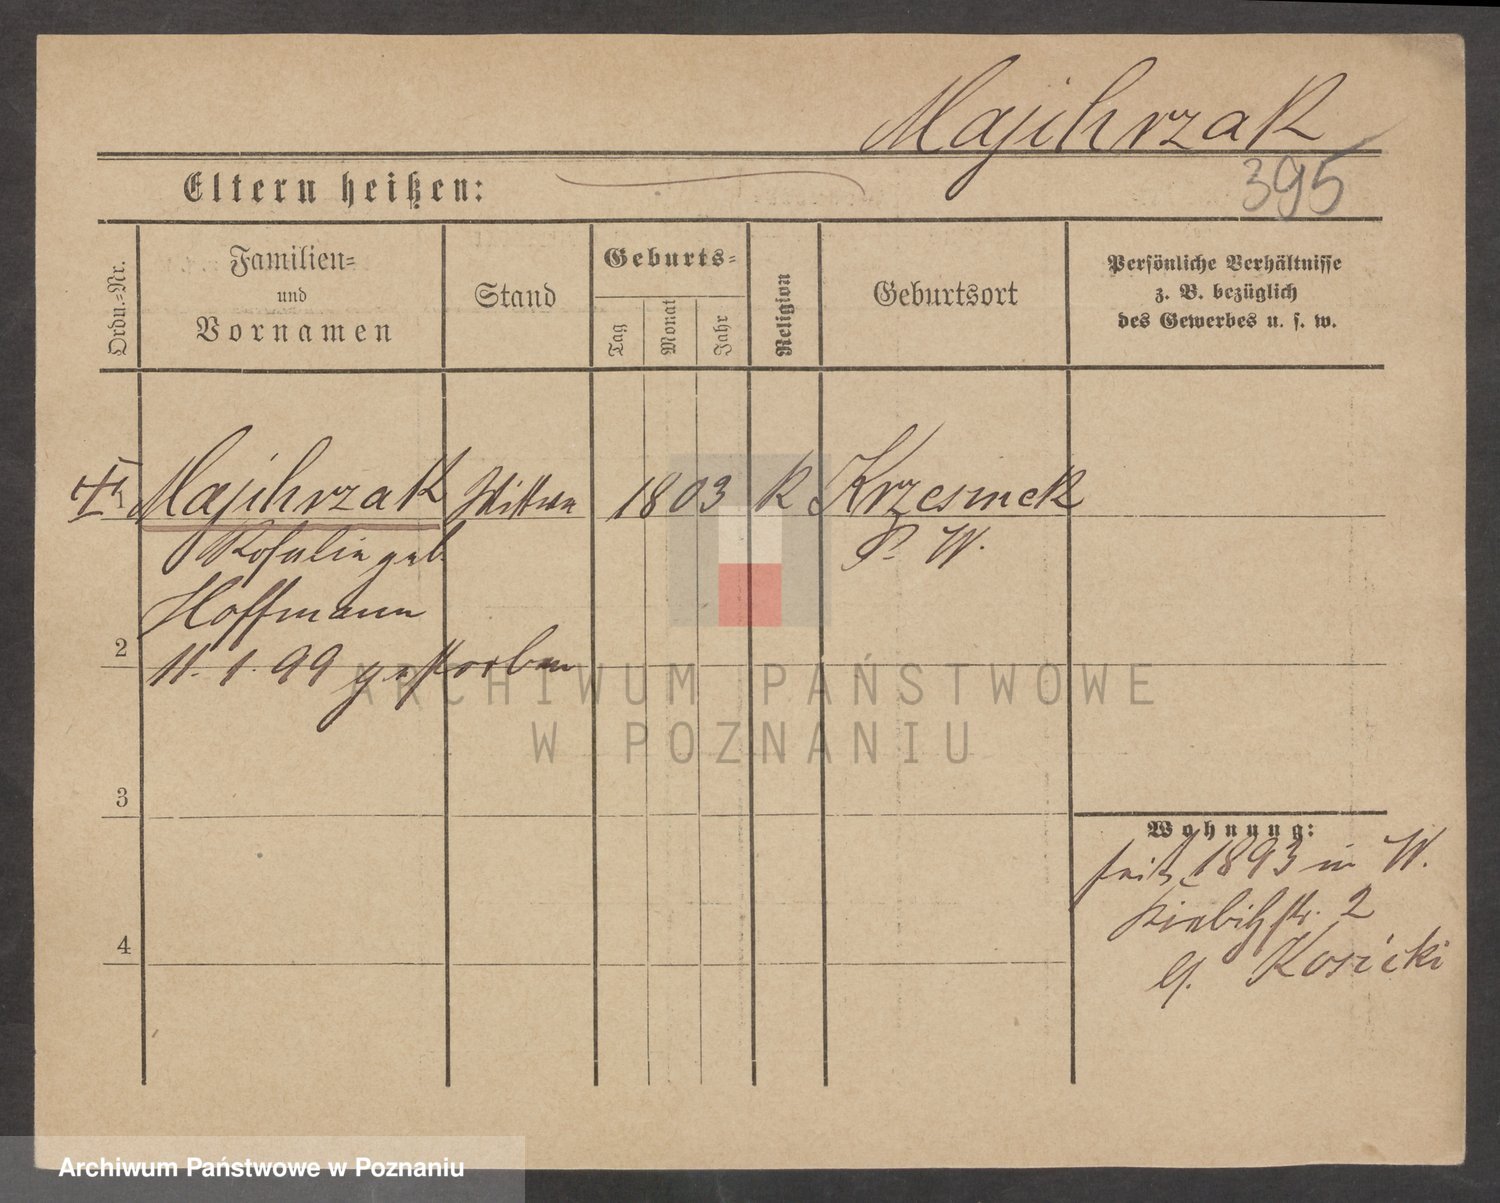 Majchrzak
395
Eltern heißen:
Ordn.-Nr.
Familien-
und
Vornamen
Stand
Geburts-
Tag
Monat
Jahr
Religion
Geburtsort
Persönliche Verhältnisse
z. B. bezüglich
des Gewerbes u. s. w.
Majchrzak Wittwe 1803 K Krzesinek
Rosalie geb. P. W.
Hoffmann
2
11. 1. 99 gestorben
ARCHIWUM PAŃSTWOWE
W POZNANIU
3
Wohnung:
seit 1893 in W.
str. 2
4
Kosicki
Archiwum Państwowe w Poznaniu